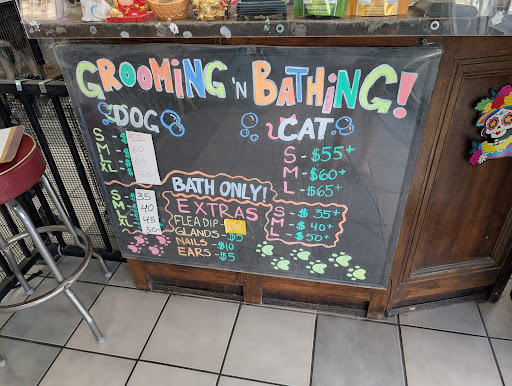 GROOMING 'N BATHING!
DOG
S - $55
M - $
L - $
XL - $
CAT
S - $55+
M - $60+
L - $65+
BATH ONLY!
S - $35
M - $40
L - $45
XL - $50
S - $35+
M - $40+
L - $50+
EXTRAS
FLEA DIP -
GLANDS - $5
NAILS - $10
EARS - $5